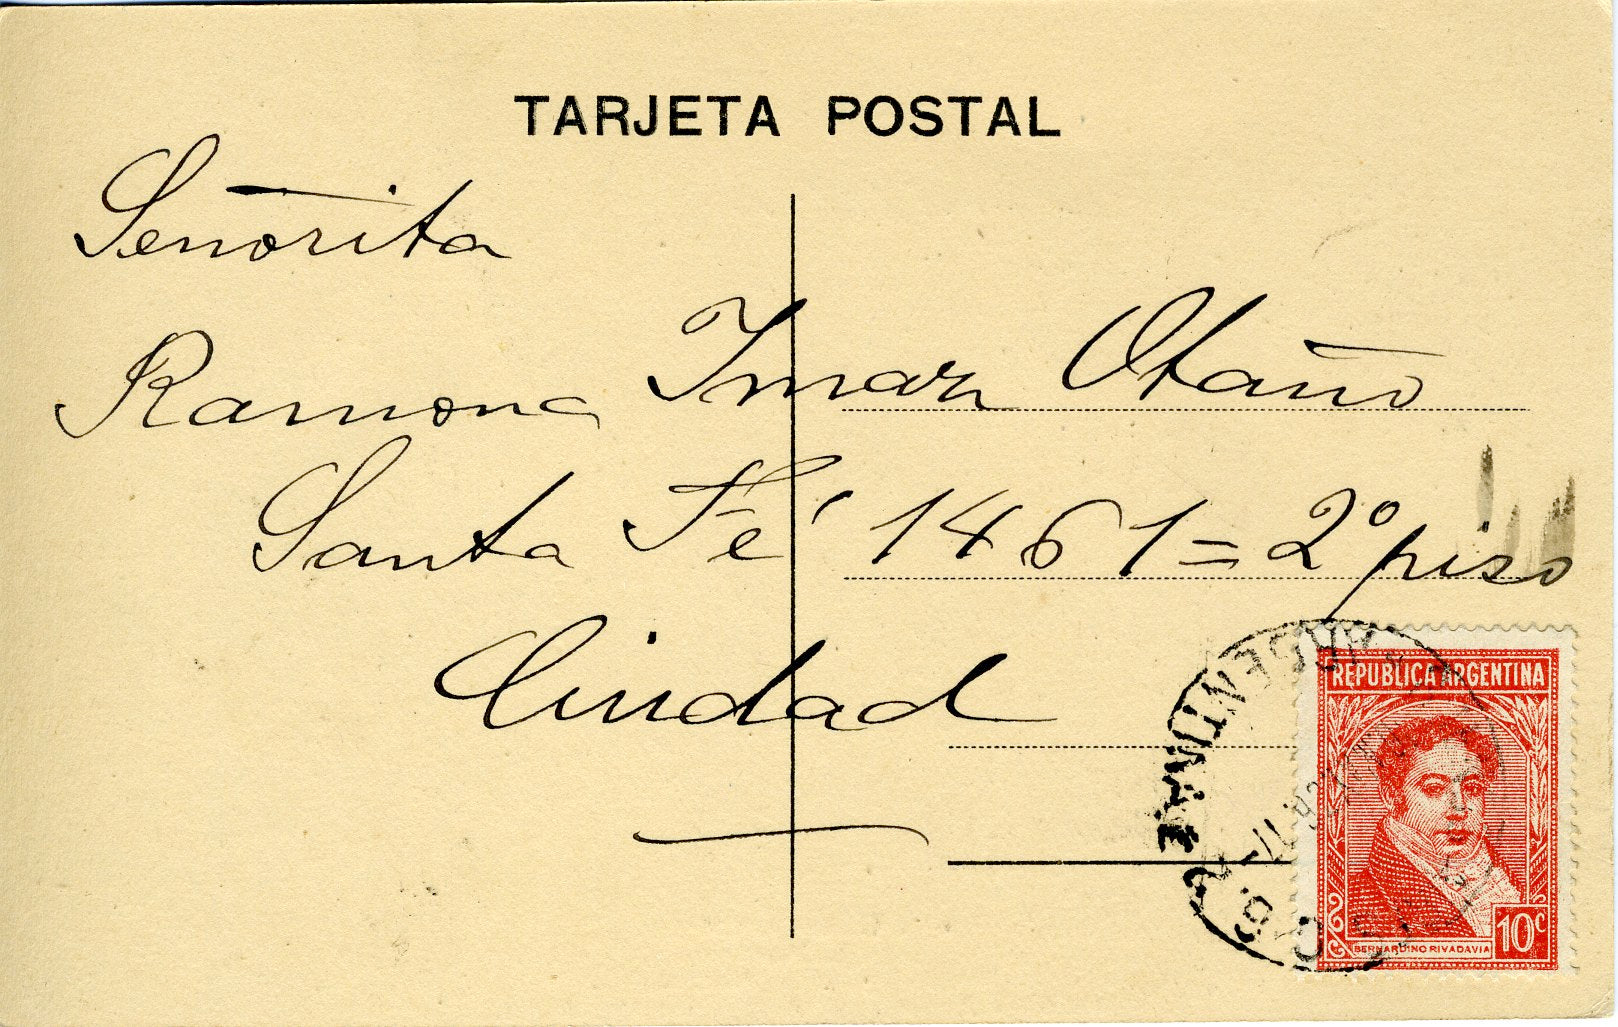 TARJETA POSTAL
Señorita
Ramona Imaz Otaño
Santa Fé 1461=2º piso
Ciudad
REPUBLICA ARGENTINA
BERNARDINO RIVADAVIA
10c
ARGENTINA